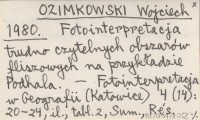 OZIMKOWSKI Wojciech x
1980. Fotointerpretacja
trudno czytelnych obszarów
fliszowych na przykładzie
Podhala. — Fotointerpretacja
w Geografii (Katowice) 4 (14):
20-24, il., tabl. 2, Sum., Res.